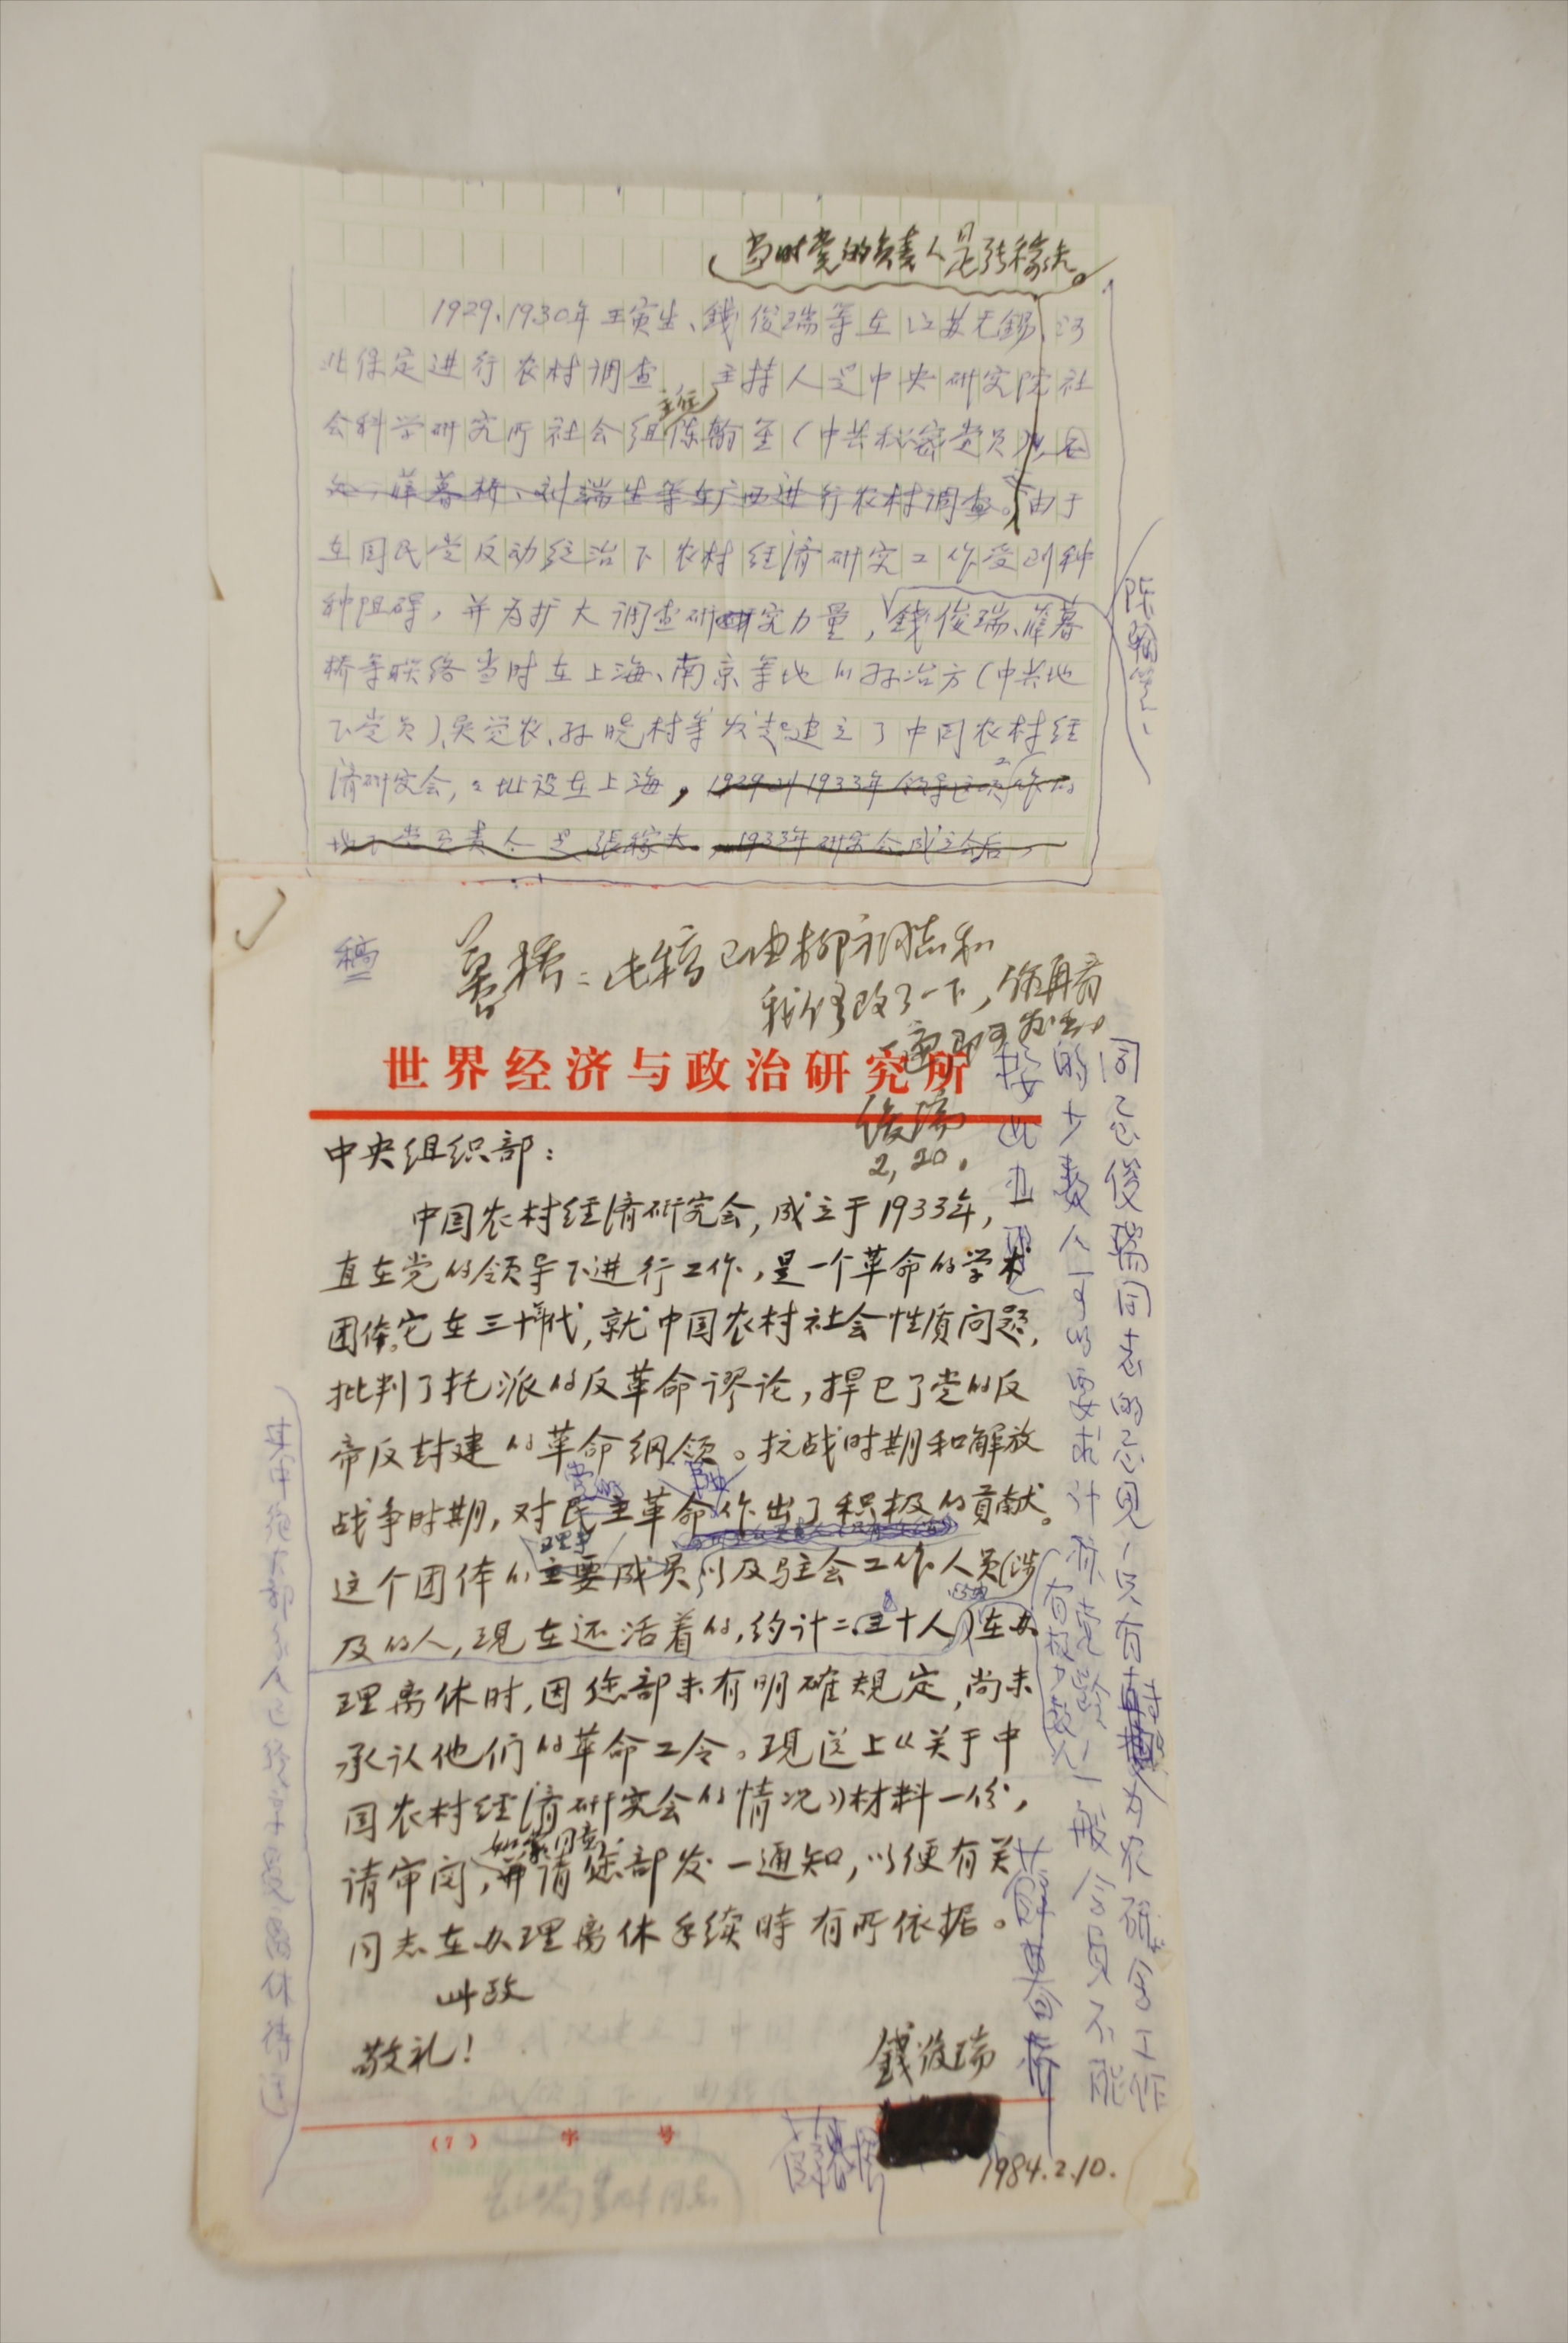 当时党的负责人是张稼夫。
1929、1930年王寅生、錢俊瑞等在江苏无錫、河
北保定进行农村调查 主持人是中央研究院社
会科学研究所社会组主任陈翰笙(中共秘密党员)
薛暮桥、刘端生等在广西进行农村调查。由于
在国民党反动统治下农村经济研究工作受到种
种阻碍,并为扩大调查研究力量,錢俊瑞、薛暮
桥等联络当时在上海、南京等地的孙冶方(中共地
下党员)、吴觉农、孙晓村等发起建立了中国农村经
济研究会,会址设在上海,1929到1933年领导这项工作的
地下党负责人是張稼夫,1933年研究会成立会后,
陈翰笙、
稿
暮桥:此稿已由柳 同志和
我修改了一下,你再看
一遍即可发出
俊瑞
2,20.
世界经济与政治研究所
中央组织部:
中国农村经济研究会,成立于1933年,
直在党的领导下进行工作,是一个革命的学术
团体。它在三十年代,就中国农村社会性质问题,
批判了托派的反革命谬论,捍卫了党的反
帝反封建的革命纲领。抗战时期和解放
战争时期,对党的民主革命作出了积极的贡献。
这个团体的理事主要成员以及驻会工作人员(涉
及的人,现在还活着的,约计二、三十人)在办
理离休时,因您部未有明确规定,尚未
承认他们的革命工令。现送上《关于中
国农村经济研究会的情况》材料一份,
请审阅,如蒙同意,并请您部发一通知,以便有关
同志在办理离休手续時有所依据。
此致
敬礼!
錢俊瑞
薛暮桥
1984.2.10.
(7) 字 号
同意俊瑞同志的意见,只有 为农研会工作
的少数人可以要求计标党龄,一般会员不能
按此办理
有极少数人
薛暮桥